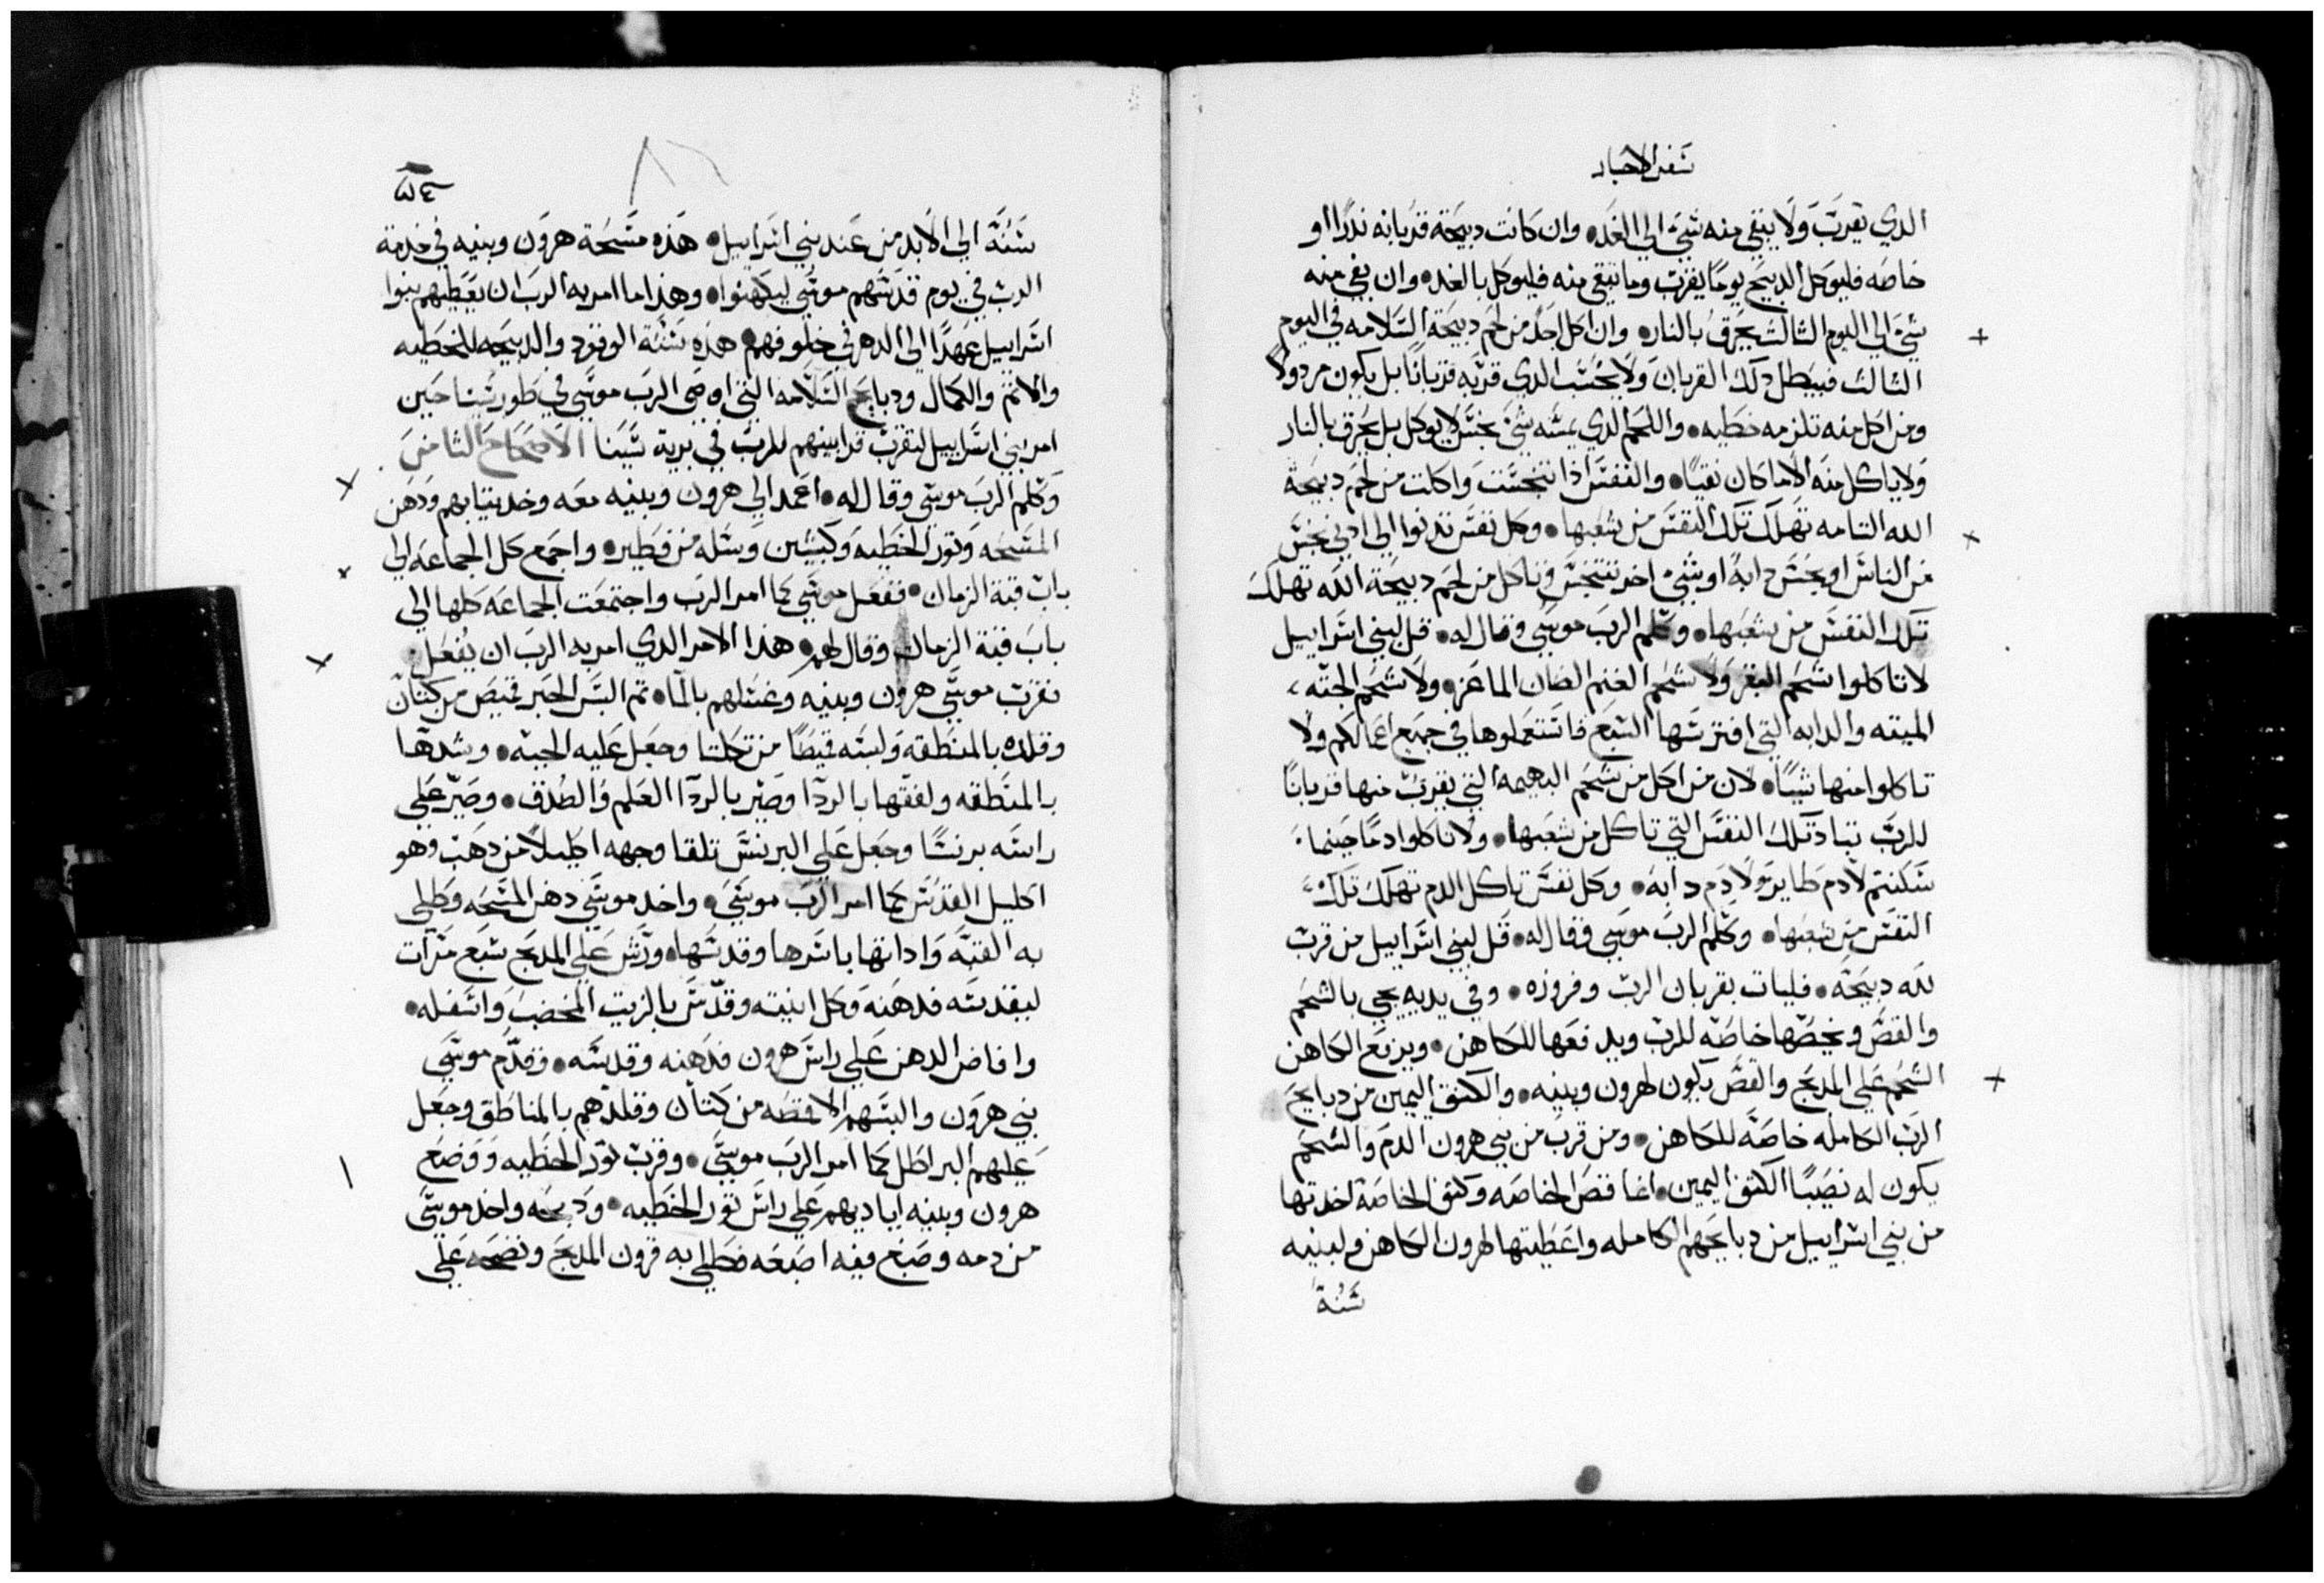 سفر الاحبار
الدي يقرب ولا يبقي منه شي الي الغد وان كانت دبيحة قربانه ندرا او
خاصه فليوكل الدبيح يوما يقرب وما تبقي منه فليوكل بالغد وان بقي منه
شي الي اليوم الثالث يحرق بالنار وان اكل احد من لحم دبيحة السلامه في اليوم
الثالث فيبطل دلك القربان ولا يحسب الدي قربه قربانا بل يكون مردولا
ومن اكل منه تلزمه خطيه واللحم الدي يمسه شي نجس لا يوكل بل يحرق بالنار
ولا ياكل منه الا ما كان نقيا والنفس ادا تنجست واكلت من لحم دبيحة
الله التامه تهلك تلك النفس من شعبها وكل نفس تدنوا الي ادني نجس
من الناس او نجس دابة او شي اخر تتنجس وتاكل من لحم دبيحة الله تهلك
تلك النفس من شعبها وكلم الرب موسي وقال له قل لبني اسراييل
لا تاكلوا شحم البقر ولا شحم الغنم الضان الماعز ولا شحم الجته
الميته والدابه التي افترسها السبع فاستعملوها في جميع اعمالكم ولا
تاكلوا منها شيا لان من اكل من شحم البهيمه التي يقرب منها قربانا
للرب تباد تلك النفس التي تاكل من شعبها ولا تاكلوا دما حيثما
سكنتم لا دم طاير ولا دم دابه وكل نفس تاكل الدم تهلك تلك
النفس من شعبها وكلم الرب موسي وقال له قل لبني اسراييل من قرب
لله دبيحة فليات بقربان الرب وفروزه وفي يديه يجي بالشحم
والقص ويخصها خاصه للرب ويدفعها للكاهن ويرفع الكاهن
الشحم علي المدبح والقص يكون لهرون وبنيه والكتف اليمين من دبايح
الرب الكامله خاصه للكاهن ومن قرب من بني هرون الدم والشحم
يكون له نصيبا الكتف اليمين انما قص الخاصه وكتف الخاصة اخدتها
من بني اسراييل من دبايحهم الكامله واعطيتها لهرون الكاهن ولبنيه
سنة
٥٤
سنة الي الابد من عند بني اسراييل هده مسحة هرون وبنيه في خدمة
الرب في يوم قدسهم موسي ليكهنوا وهدا ما امر به الرب ان يعطيهم بنوا
اسراييل عهدا الي الدهر في خلوفهم هده سنة الوقود والدبيحه للخطيه
والاتم والكمال ودبايح السلامه التي اوصي الرب موسي في طور سينا حين
امر بني اسراييل لتقرب قرابينهم للرب في برية سينا الاصحاح الثامن
وكلم الرب موسي وقال له اعمد الي هرون وبنيه معه وخد تيابهم ودهن
المسحه وتور الخطيه وكبشين وسله من فطير واجمع كل الجماعه الي
باب قبة الزمان ففعل موسي كما امر الرب واجتمعت الجماعه كلها الي
باب قبة الزمان وقال لهم هدا الامر الدي امر به الرب ان يفعل
فقرب موسي هرون وبنيه وغسلهم بالما تم البس الحبر قميص من كتان
وقلده بالمنطقه ولبسه قميطا من تحلتا وجعل عليه الجبه وشدها
بالمنطقه ولفقها بالردا وصير بالردا العلم والصدق وصير علي
راسه برنسا وجعل علي البرنس تلقا وجهه اكليلا من دهب وهو
اكليل القدس كما امر الرب موسي واخد موسي دهن المسحه وطلي
به القبه واداتها باسرها وقدسها ورش علي المدبح سبع مرات
ليقدسه فدهنه وكل انيته وقدس بالزيت المخضب واسفله
وافاض الدهن علي راس هرون فدهنه وقدسه وقدم موسي
بني هرون والبسهم الاقمصه من كتان وقلدهم بالمناطق وجعل
عليهم البراطل كما امر الرب موسي وقرب تور الخطيه ووضع
هرون وبنيه اياديهم علي راس تور الخطيه ودبحه واخد موسي
من دمه وصبغ فيه اصبعه فطلي به قرون المدبح ونضحه علي